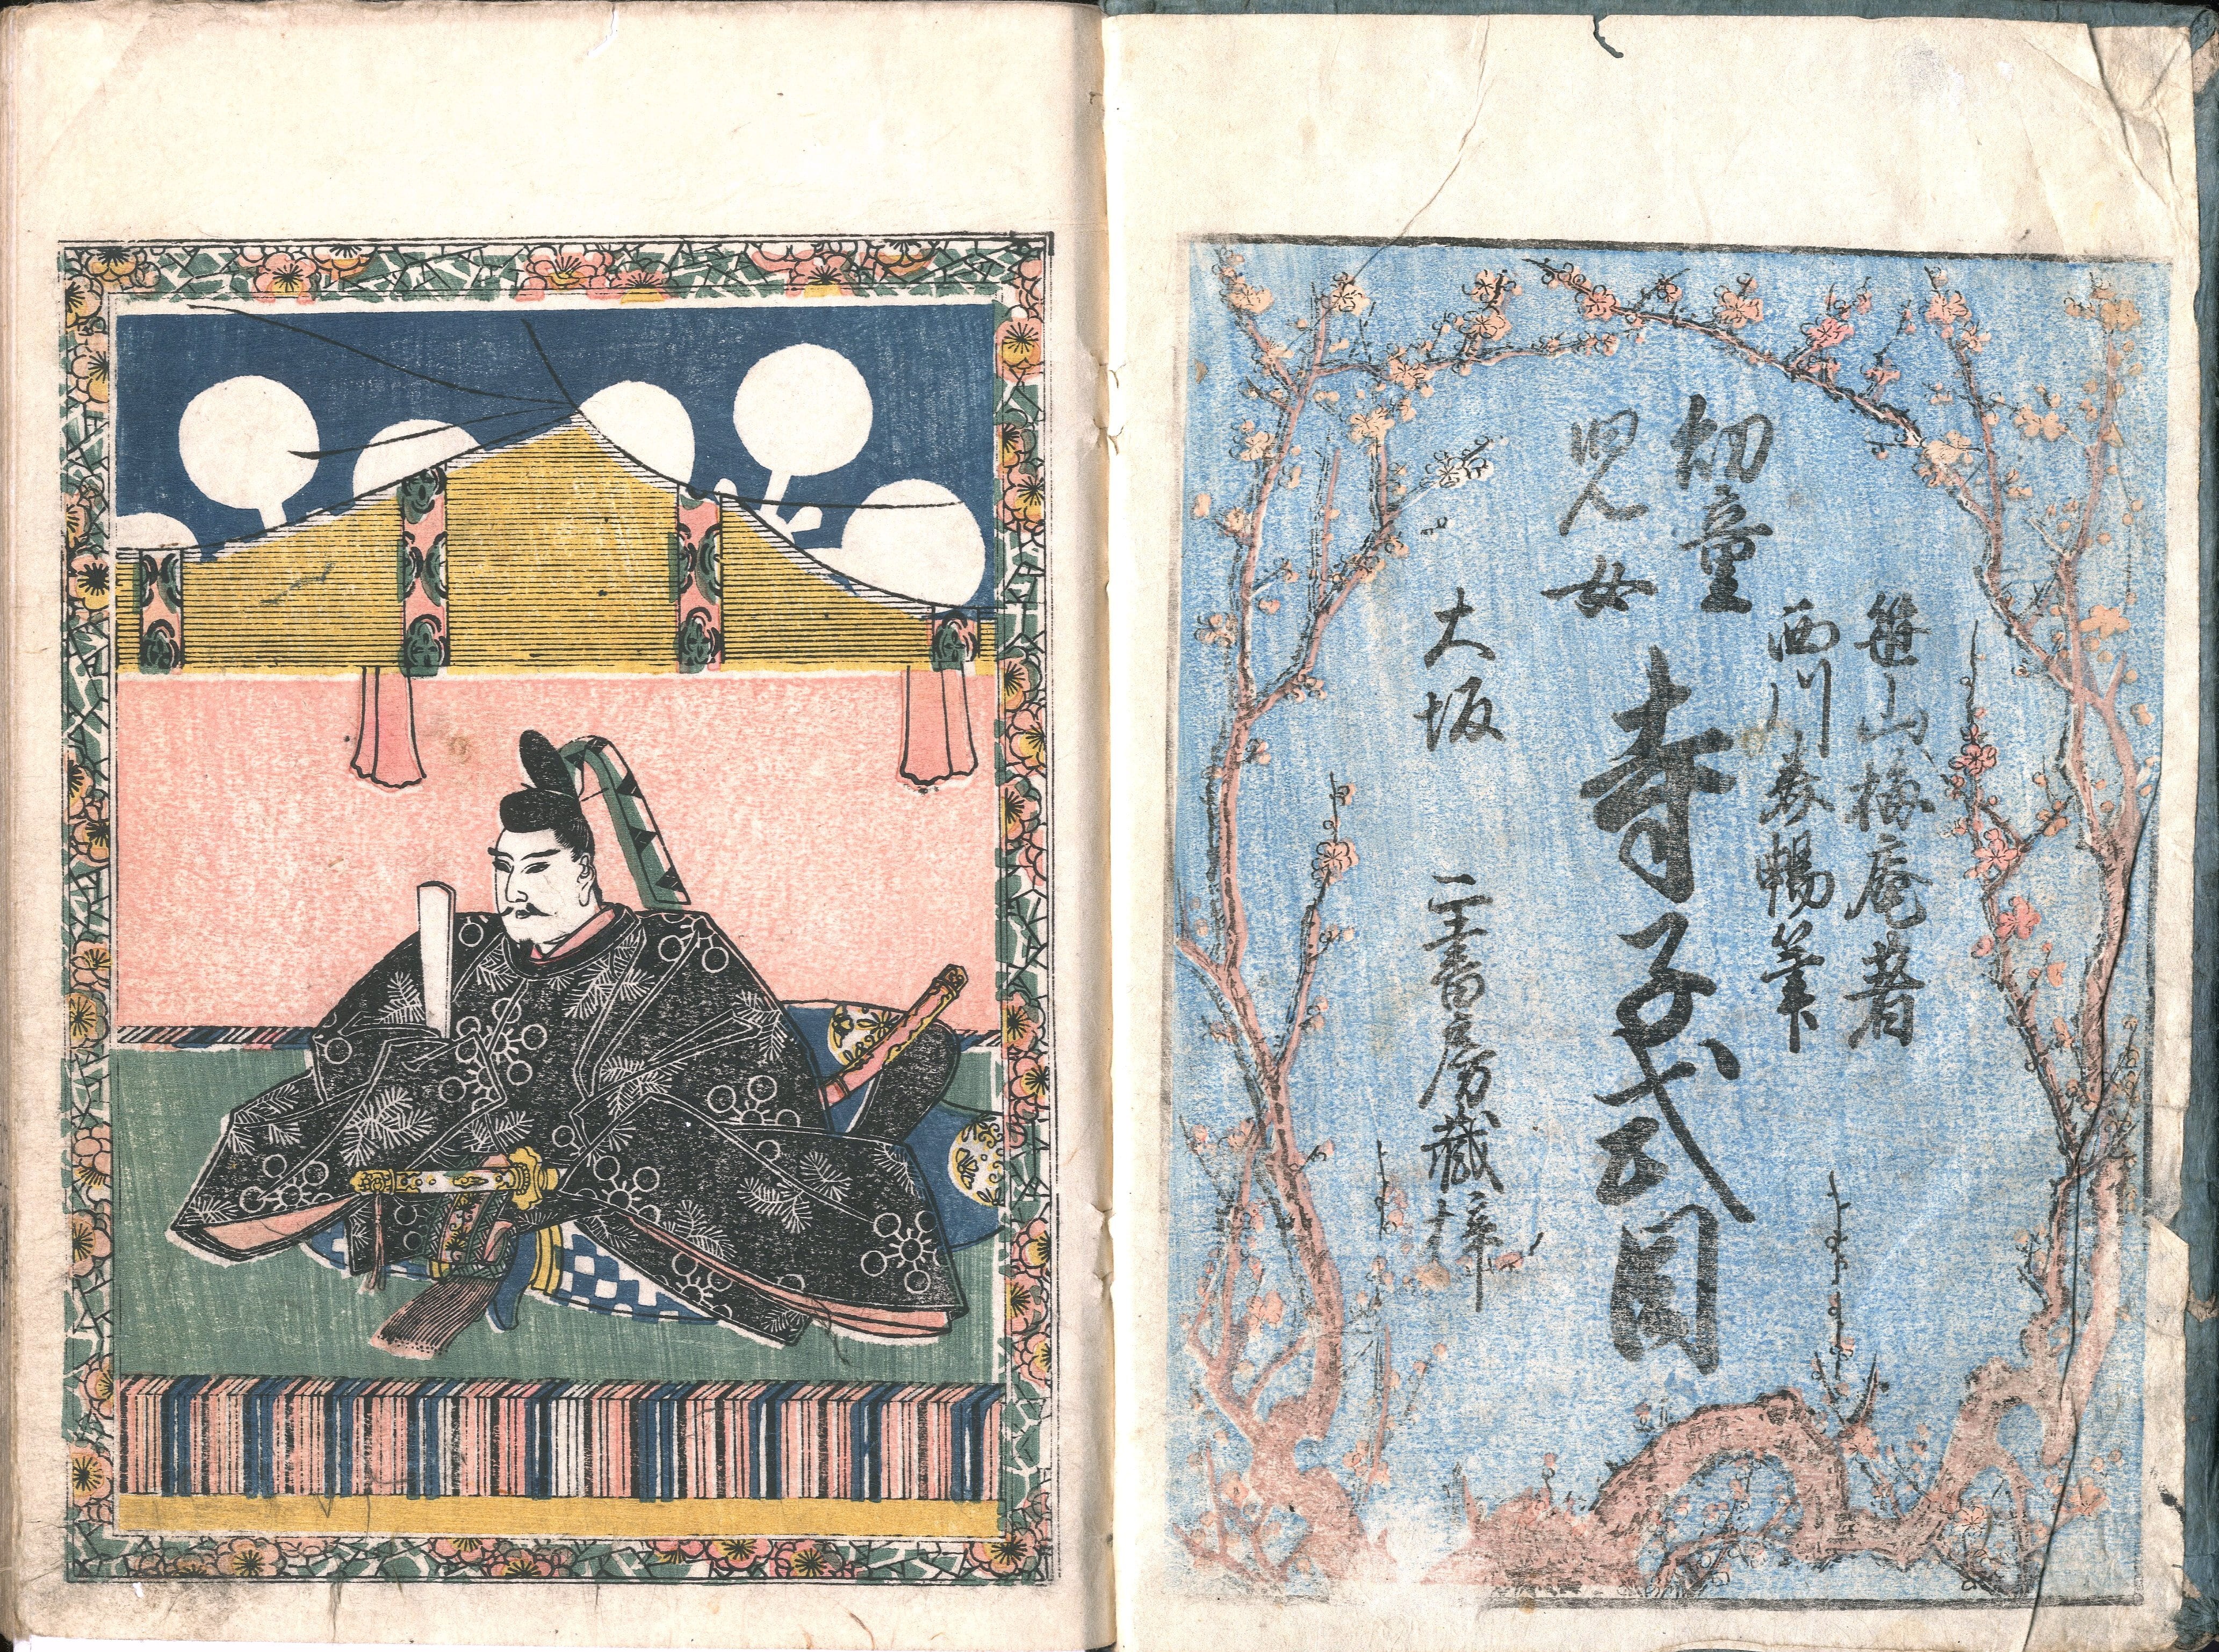 笹山梅庵著
西川 暢筆
幼童
児女
寺子式目
大坂
書房藏梓